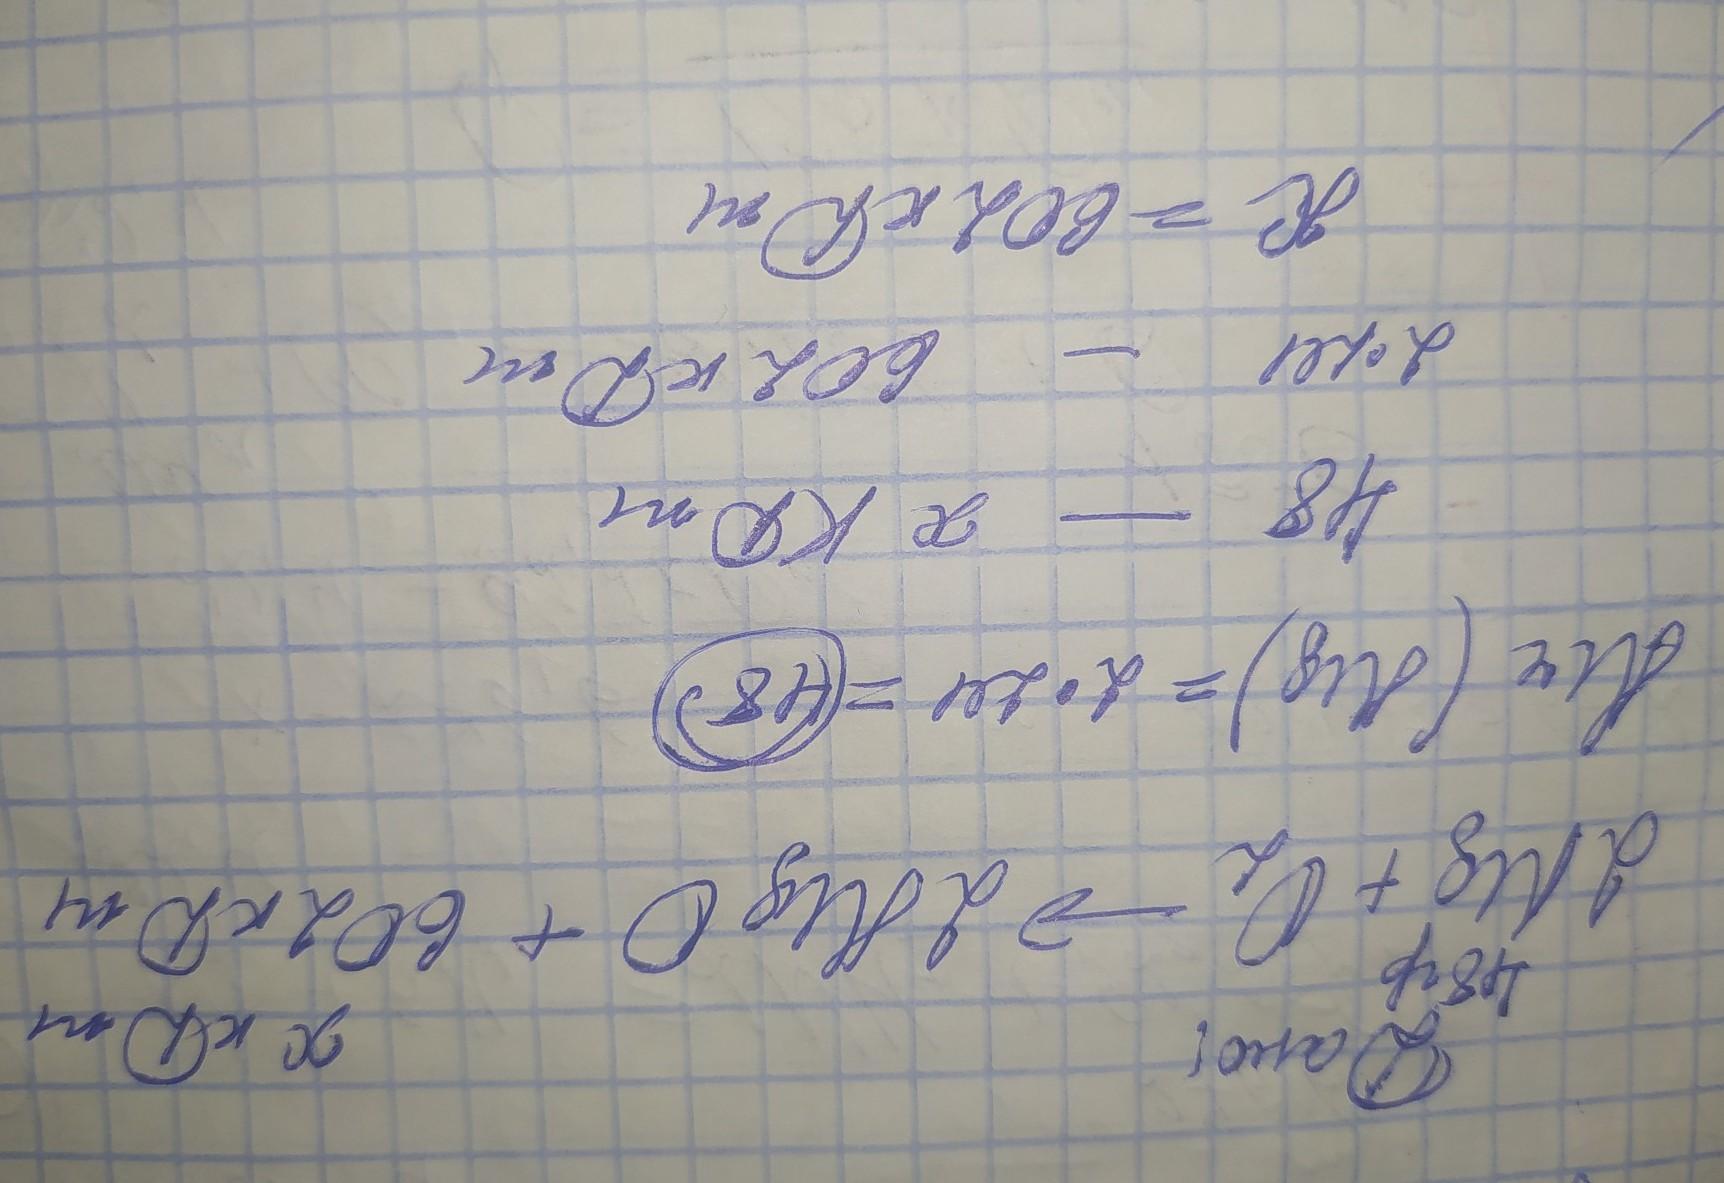 Дано: x кДж
48гр
2Mg + O2 → 2MgO + 602 кДж
Mr (Mg) = 2·24 = 48
48 — x кДж
2·24 — 602 кДж
x = 602 кДж